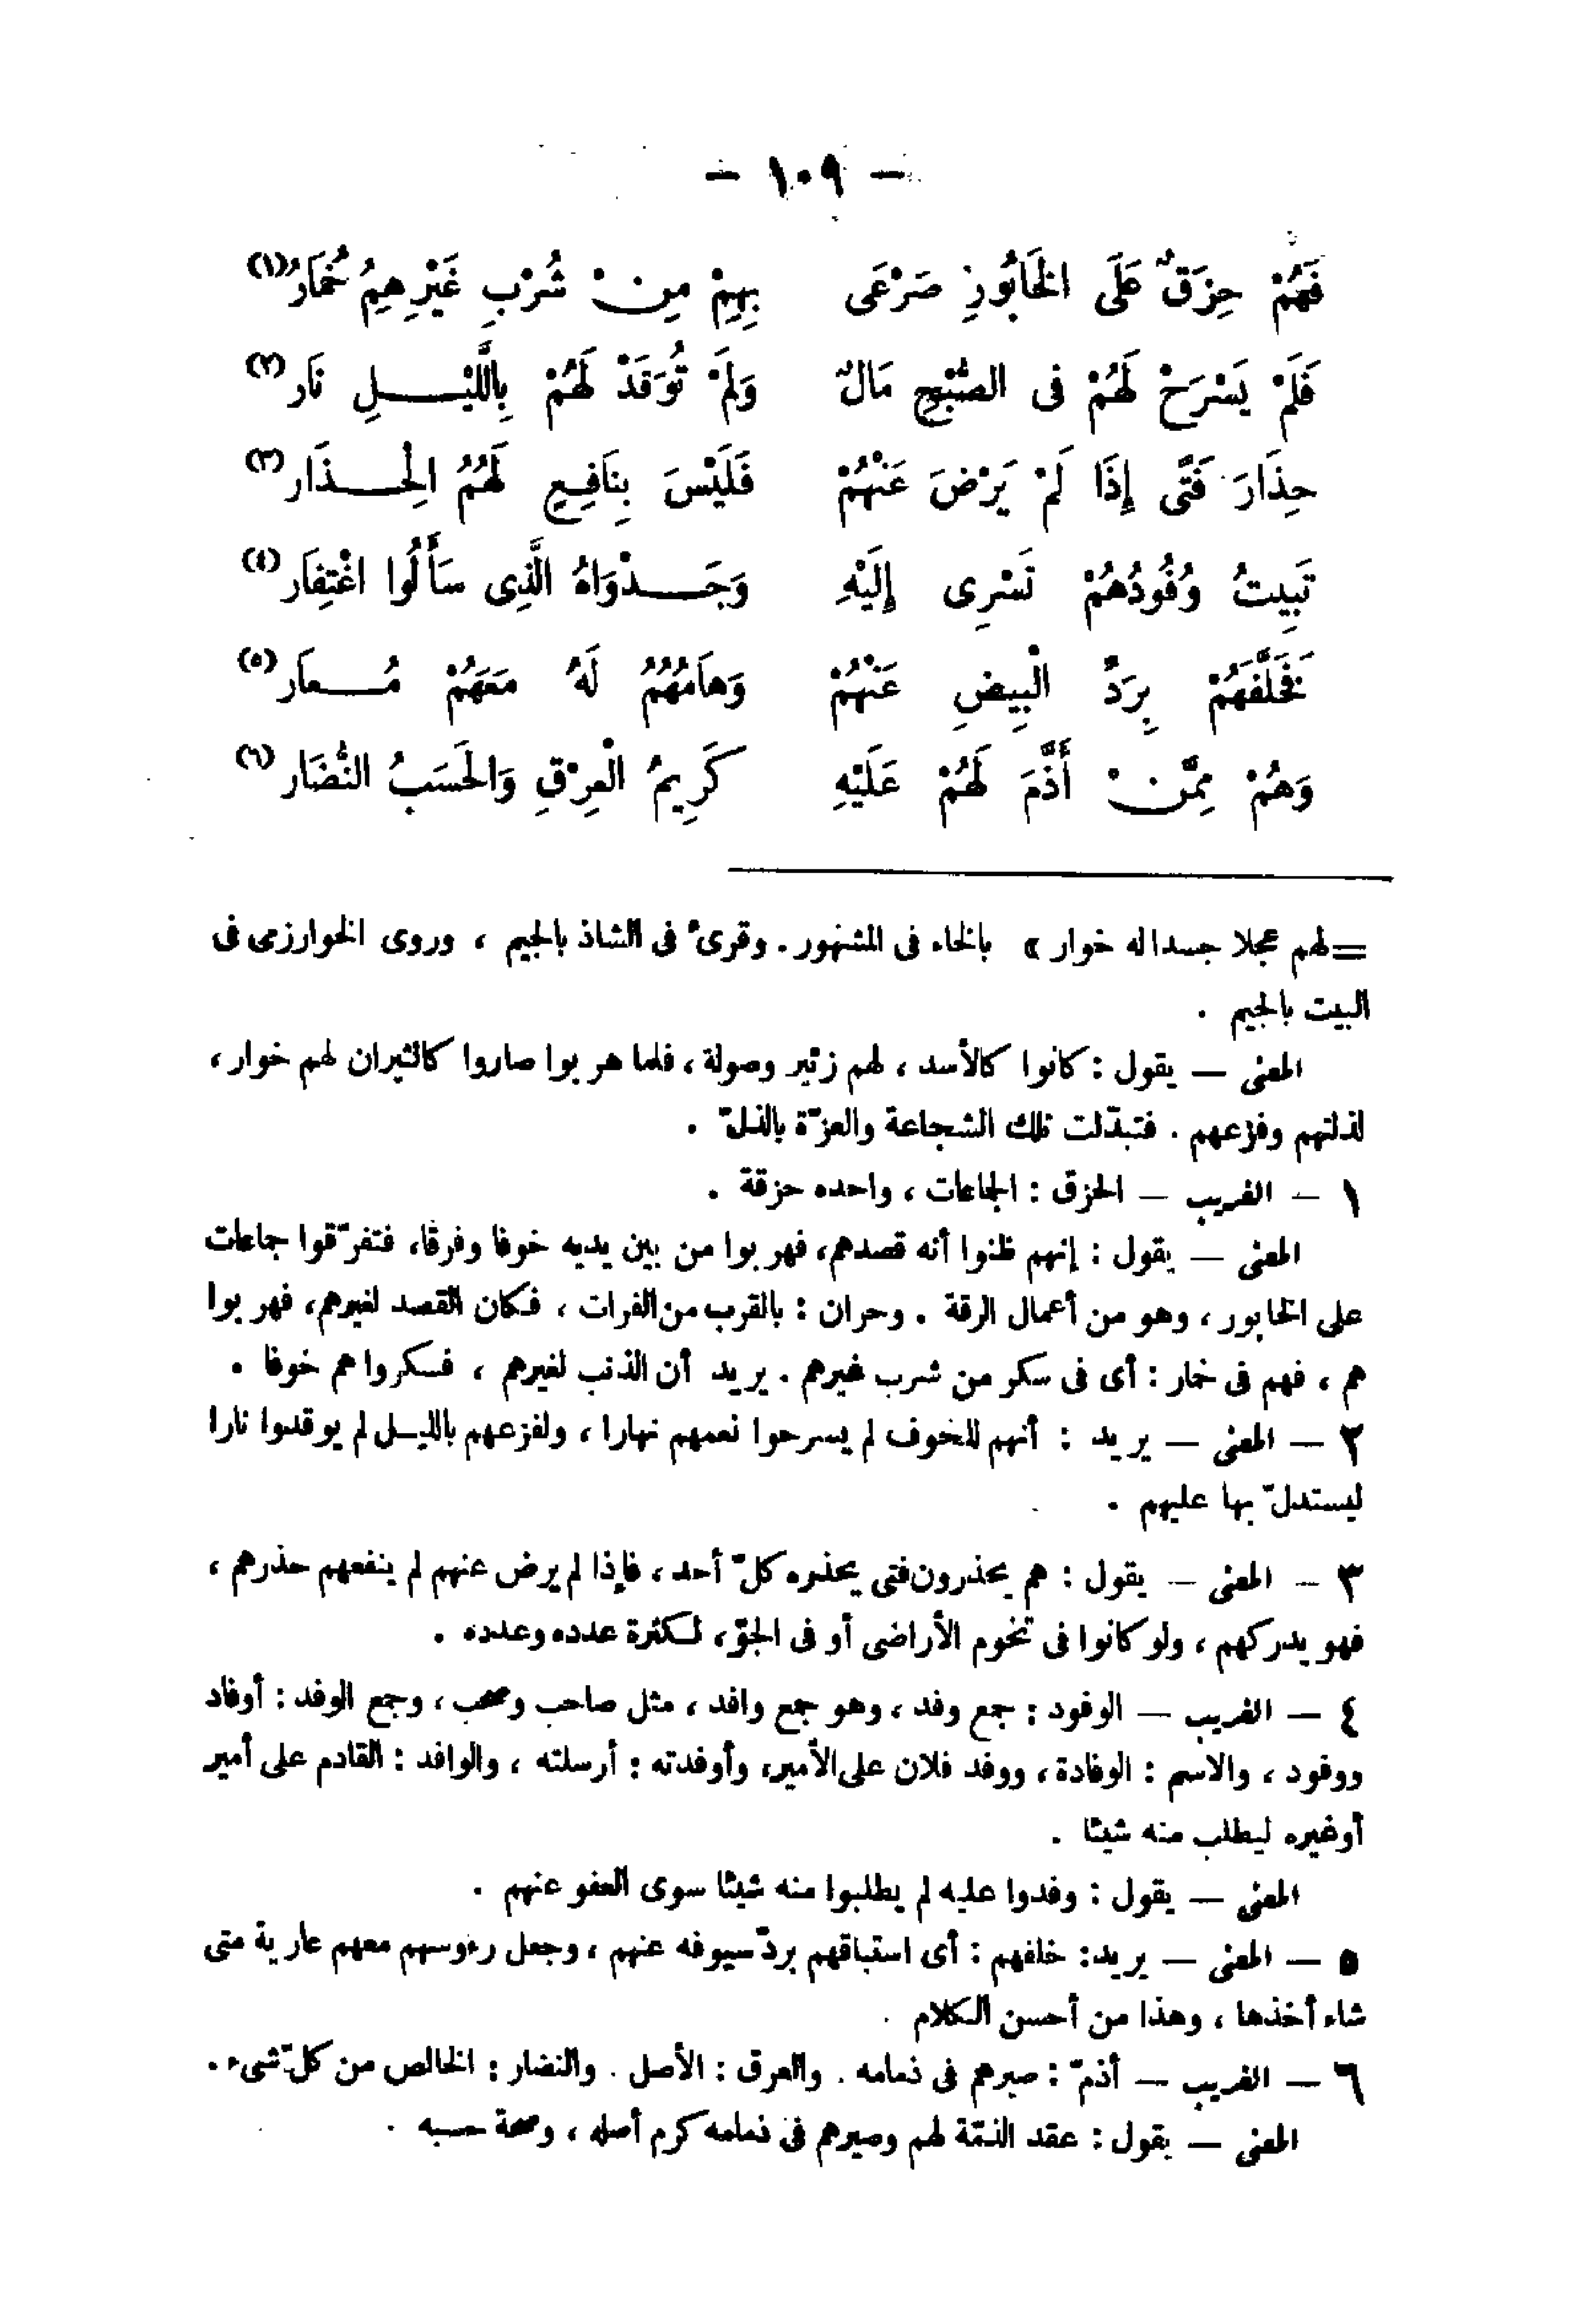 — ١٠٩ —
فَهُمْ حِزَقٌ عَلَى الْخَابُورِ صَرْعَى بِهِمْ مِنْ شُرْبِ غَيْرِهِمُ خُمَارُ (١)
فَلَمْ يَسْرَحْ لَهُمْ فى الصُّبْحِ مَالٌ وَلَمْ تُوقَدْ لَهُمْ بِاللَّيْلِ نَار (٢)
حِذَارَ فَتًى إِذَا لَمْ يَرْضَ عَنْهُمْ فَلَيْسَ بِنَافِعٍ لَهُمُ الْحِذَار (٣)
تَبِيتُ وُفُودُهُمْ تَسْرِى إِلَيْهِ وَجَدْوَاهُ الَّذِى سَأَلُوا اغْتِفَار (٤)
فَخَلَّفَهُمْ بِرَدِّ الْبِيضِ عَنْهُمْ وَهَامُهُمُ لَهُ مَعَهُمْ مُعَار (٥)
وَهُمْ مِمَّنْ أَذَمَّ لَهُمْ عَلَيْهِ كَرِيمُ الْعِرْقِ وَالْحَسَبُ النُّضَار (٦)
=لهم عجلا جسدا له خوار » بالخاء فى المشهور . وقرئ فى الشاذ بالجيم ، وروى الخوارزمى فى
البيت بالجيم .
المعنى — يقول : كانوا كالأسد ، لهم زئير وصولة ، فلما هربوا صاروا كالثيران لهم خوار ،
لذلتهم وفزعهم . فتبدّلت تلك الشجاعة والعزّة بالذلّ .
١ — الغريب — الحزق : الجماعات ، واحده حزقة .
المعنى — يقول : إنهم ظنوا أنه قصدهم، فهربوا من بين يديه خوفا وفرقا، فتفرّقوا جماعات
على الخابور ، وهو من أعمال الرقة . وحران : بالقرب من الفرات ، فكان القصد لغيرهم، فهربوا
هم ، فهم فى خمار : أى فى سكر من شرب غيرهم . يريد أن الذنب لغيرهم ، فسكروا هم خوفا .
٢ — المعنى — يريد : أنهم للخوف لم يسرحوا نعمهم نهارا ، ولفزعهم بالليل لم يوقدوا نارا
ليستدلّ بها عليهم .
٣ — المعنى — يقول : هم يحذرون فتى يحذره كلّ أحد ، فإذا لم يرض عنهم لم ينفعهم حذرهم ،
فهو يدركهم ، ولو كانوا فى تخوم الأراضى أو فى الجوّ، لكثرة عدده وعدده .
٤ — الغريب — الوفود : جمع وفد ، وهو جمع وافد ، مثل صاحب وصحب ، وجمع الوفد : أوفاد
ووفود ، والاسم : الوفادة ، ووفد فلان على الأمير، وأوفدته : أرسلته ، والوافد : القادم على أمير
أو غيره ليطلب منه شيئا .
المعنى — يقول : وفدوا عليه لم يطلبوا منه شيئا سوى العفو عنهم .
٥ — المعنى — يريد: خلفهم : أى استباقهم بردّ سيوفه عنهم ، وجعل رءوسهم معهم عارية متى
شاء أخذها ، وهذا من أحسن الكلام .
٦ — الغريب — أذمّ : صيرهم فى ذمامه . والعرق : الأصل . والنضار : الخالص من كلّ شىء .
المعنى — يقول : عقد الذمّة لهم وصيرهم فى ذمامه كرم أصله ، وصحة حسبه .